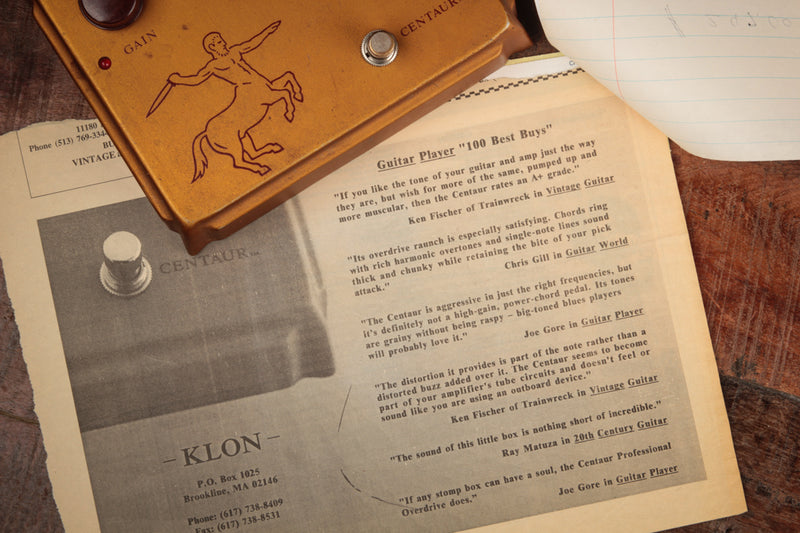 GAIN
CENTAUR
11180
Phone (513) 769-334
BU
VINTAGE
CENTAUR™
– KLON –
P.O. Box 1025
Brookline, MA 02146
Phone: (617) 738-8409
Fax: (617) 738-8531
Guitar Player "100 Best Buys"
"If you like the tone of your guitar and amp just the way
they are, but wish for more of the same, pumped up and
more muscular, then the Centaur rates an A+ grade."
Ken Fischer of Trainwreck in Vintage Guitar
"Its overdrive raunch is especially satisfying. Chords ring
with rich harmonic overtones and single-note lines sound
thick and chunky while retaining the bite of your pick
attack."
Chris Gill in Guitar World
"The Centaur is aggressive in just the right frequencies, but
it's definitely not a high-gain, power-chord pedal. Its tones
are grainy without being raspy – big-toned blues players
will probably love it."
Joe Gore in Guitar Player
"The distortion it provides is part of the note rather than a
distorted buzz added over it. The Centaur seems to become
part of your amplifier's tube circuits and doesn't feel or
sound like you are using an outboard device."
Ken Fischer of Trainwreck in Vintage Guitar
"The sound of this little box is nothing short of incredible."
Ray Matuza in 20th Century Guitar
"If any stomp box can have a soul, the Centaur Professional
Overdrive does."
Joe Gore in Guitar Player